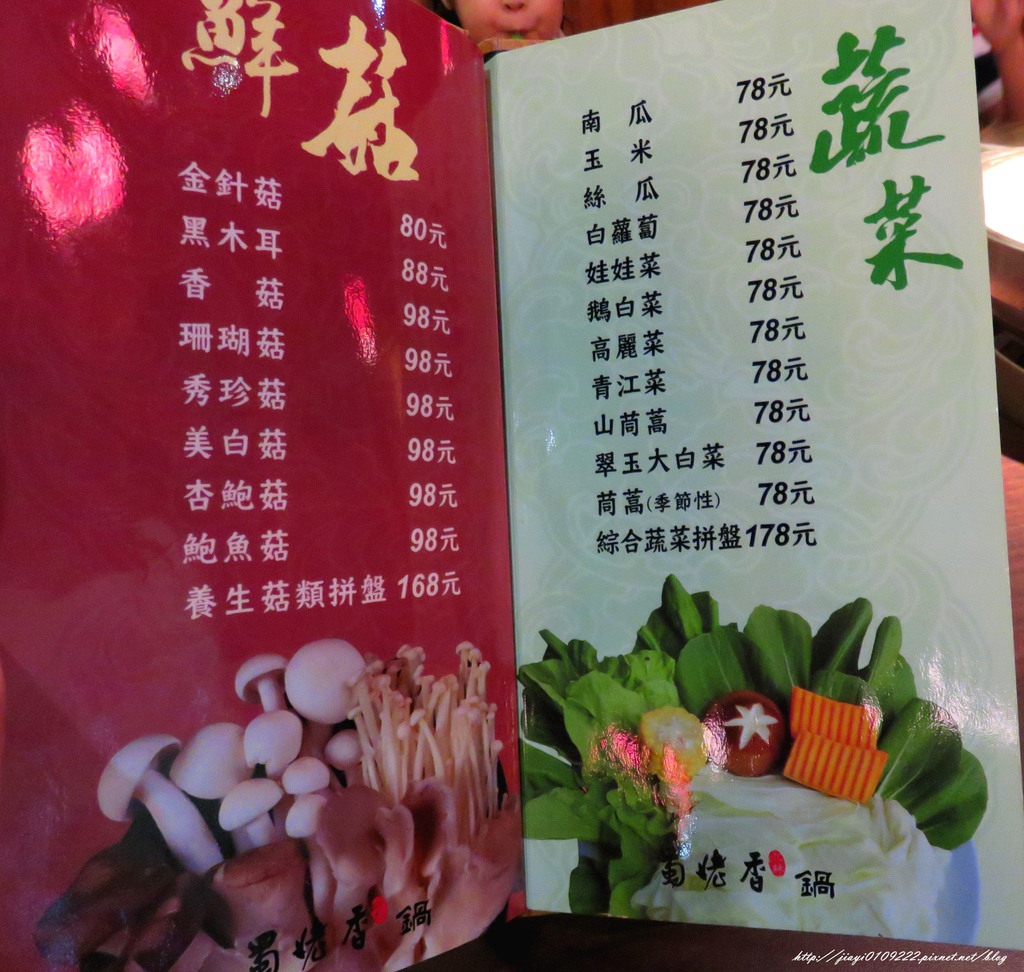 鮮菇
金針菇 80元
黑木耳 88元
香菇 98元
珊瑚菇 98元
秀珍菇 98元
美白菇 98元
杏鮑菇 98元
鮑魚菇 98元
養生菇類拼盤 168元
蜀姥香 鍋
蔬菜
南瓜 78元
玉米 78元
絲瓜 78元
白蘿蔔 78元
娃娃菜 78元
鵝白菜 78元
高麗菜 78元
青江菜 78元
山茼蒿 78元
翠玉大白菜 78元
茼蒿(季節性) 78元
綜合蔬菜拼盤 178元
蜀姥香 鍋
http://jiayi0109222.pixnet.net/blog